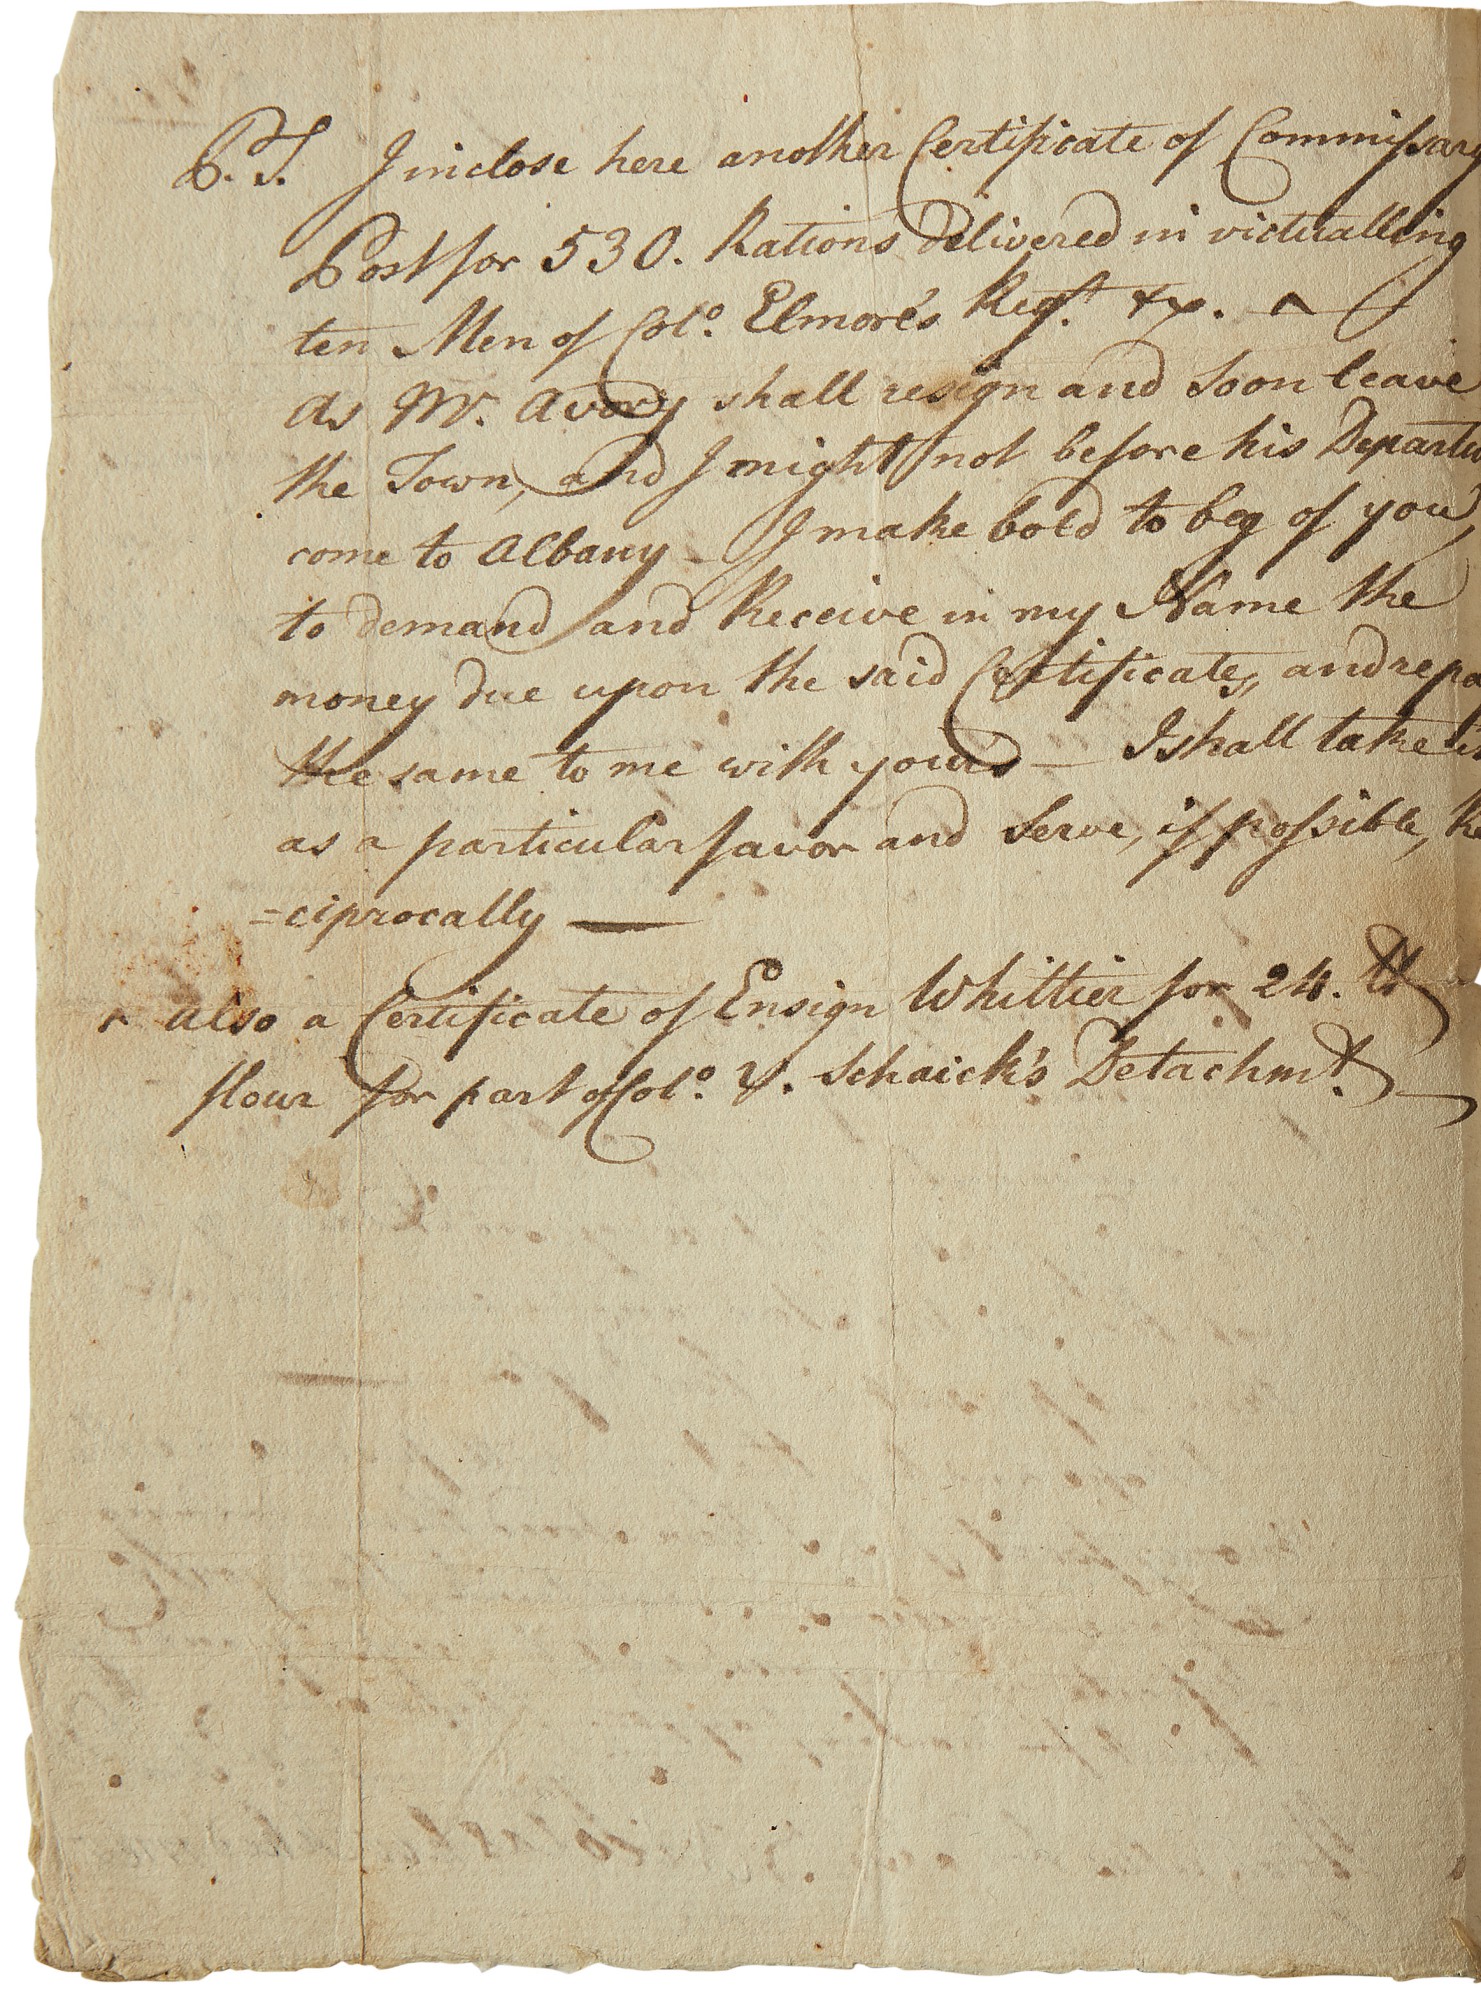 P.S. I inclose here another Certificate of Commissary
Post for 530. Rations delivered in victualling
ten Men of Col.o Elmore's Reg.t &c. ^
as Mr. Avory shall resign and soon leave
the Town, and I might not before his Departu
come to Albany – I make bold to beg of you,
to demand and Receive in my Name the
money due upon the said Certificates, and repa
the same to me with yours – I shall take it
as a particular favor and serve, if possible, Re
=ciprocally —
^ also a Certificate of Ensign Whittier for 24. lb
flour for part of Col.o V. Schaick's Detachm.t